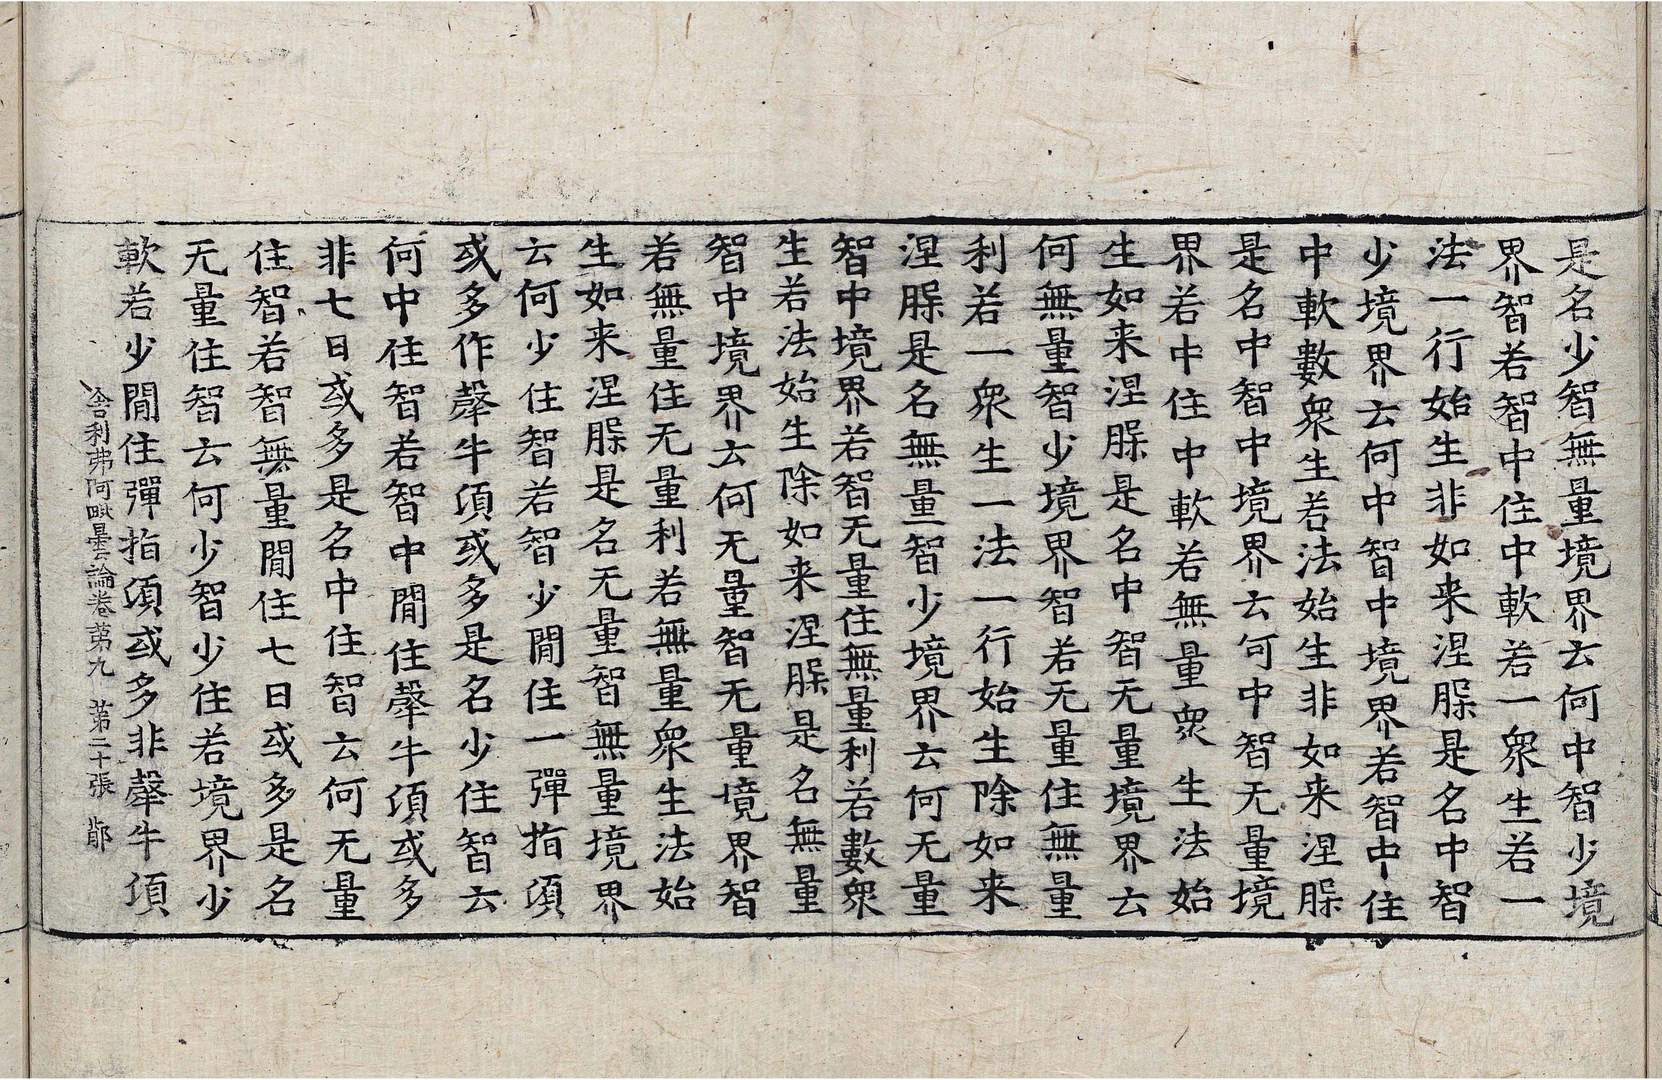 是名少智無量境界云何中智少境
界智若智中住中軟若一衆生若一
法一行始生非如来涅槃是名中智
少境界云何中智中境界若智中住
中軟數衆生若法始生非如来涅槃
是名中智中境界云何中智无量境
界若中住中軟若無量衆生法始
生如来涅槃是名中智无量境界云
何無量智少境界智若无量住無量
利若一衆生一法一行始生除如来
涅槃是名無量智少境界云何无量
智中境界若智无量住無量利若數衆
生若法始生除如来涅槃是名無量
智中境界云何无量智无量境界智
若無量住无量利若無量衆生法始
生如来涅槃是名无量智無量境界
云何少住智若智少閒住一彈指須
或多作犛牛須或多是名少住智云
何中住智若智中閒住犛牛須或多
非七日或多是名中住智云何无量
住智若智無量閒住七日或多是名
无量住智云何少智少住若境界少
軟若少閒住彈指須或多非犛牛須
舎利弗阿毗曇論卷第九 第二十張 𨛗